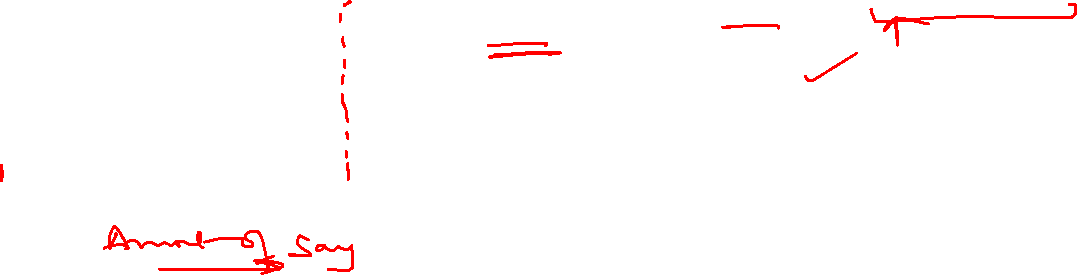 Amount of Say